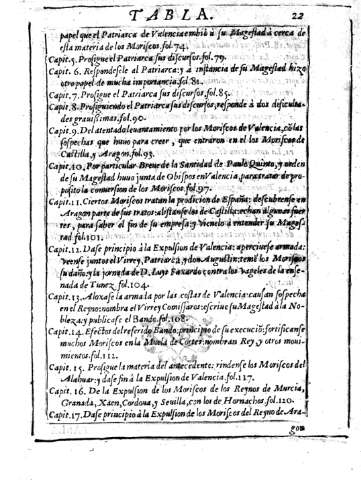 TABLA. 22
papel que el Patriarca de Valencia embiò à su Magestad à cerca de
esta materia de los Moriscos.fol.74.
Capit. 5. Prosigue el Patriarca sus discursos.fol.79.
Capit. 6. Respondesele al Patriarca: y à instancia de su Magestad hizo
otro papel de mucha importancia.fol.81.
Capit.7. Prosigue el Patriarca sus discursos.fol.85.
Capit.8. Prosiguiendo el Patriarca sus discursos, responde à dos dificulta-
des grauissimas.fol.90.
Capit.9. Del atentado leuantamiento por los Moriscos de Valencia, cõ las
sospechas que huuo para creer, que entraron en el los Moriscos de
Castilla, y Aragon.fol.93.
Capit.10. Por particular Breue de la Santidad de Paulo Quinto, y orden
de su Magestad huuo junta de Obispos en Valencia, para tratar de pro-
posito la conuersion de los Moriscos.fol.97.
Capit.11. Ciertos Moriscos tratan la prodicion de España: descubrense en
Aragon parte de sus tratos: alistanse los de Castilla: echan algunos fue-
res, para saber el fin de su empresa: y vienelo à entender su Mages-
tad.fol.101.
Capit.12. Dase principio à la Expulsion de Valencia: aperciuese armada:
veense juntos el Virrey, Patriarca, y don Augustin: temẽ los Moriscos
su daño: y la jornada de D. Luys Faxardo contra los vageles de la ense-
nada de Tunez.fol.104.
Capit.13. Aloxase la armada por las costas de Valencia: causan sospecha
en el Reyno: nombra el Virrey Comissarios: escriue su Magestad à la No-
bleza, y publicase el Bando.fol.108.
Capit.14. Efectos del referido Bando: principio de su execuciõ: fortificanse
muchos Moriscos en la Muela de Cortes: nombran Rey, y otros moui-
mientos.fol.112.
Capit.15. Prosigue la materia del antecedente: rindense los Moriscos del
Alahuar: y dase fin à la Expulsion de Valencia.fol.117.
Capit.16. De la Expulsion de los Moriscos de los Reynos de Murcia,
Granada, Xaen, Cordoua, y Seuilla, con los de Hornachos.fol.120.
Capit.17. Dase principio à la Expulsion de los Moriscos del Reyno de Ara-
gon